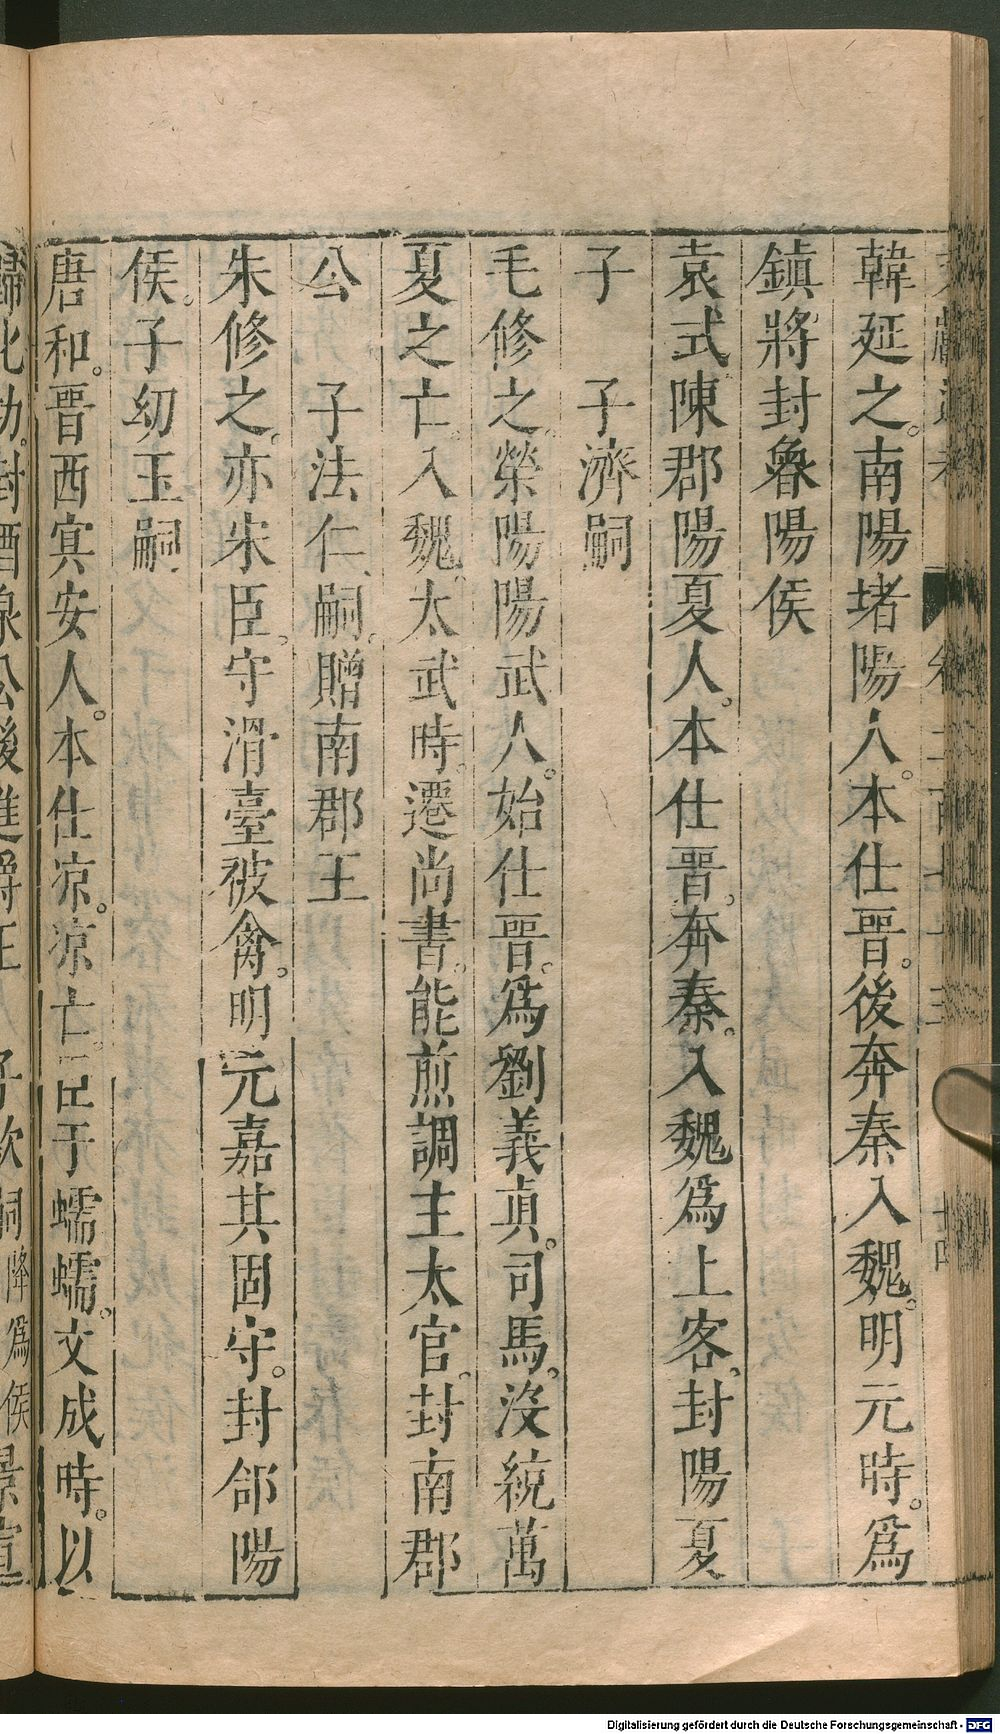 韓延之。南陽堵陽人。本仕晋。後奔秦入魏。明元時。爲
鎮將封魯陽侯
袁式陳郡陽夏人。本仕晋。奔秦。入魏爲上客。封陽夏
子　子濟嗣
毛修之。滎陽陽武人。始仕晋。爲劉義真。司馬。沒統萬
夏之亡。入魏。太武時。遷尚書。能煎調主太官。封南郡
公　子法仁嗣。贈南郡王
朱修之。亦宋臣。守滑臺被禽。明元嘉其固守。封郃陽
侯。子幼玉嗣
唐和。晋西㝠安人。本仕凉。凉亡。臣于蠕蠕。文成時。以
歸北功。封酒泉公後進爵王　子欽嗣降爲侯景宣
Digitalisierung gefördert durch die Deutsche Forschungsgemeinschaft - DFG